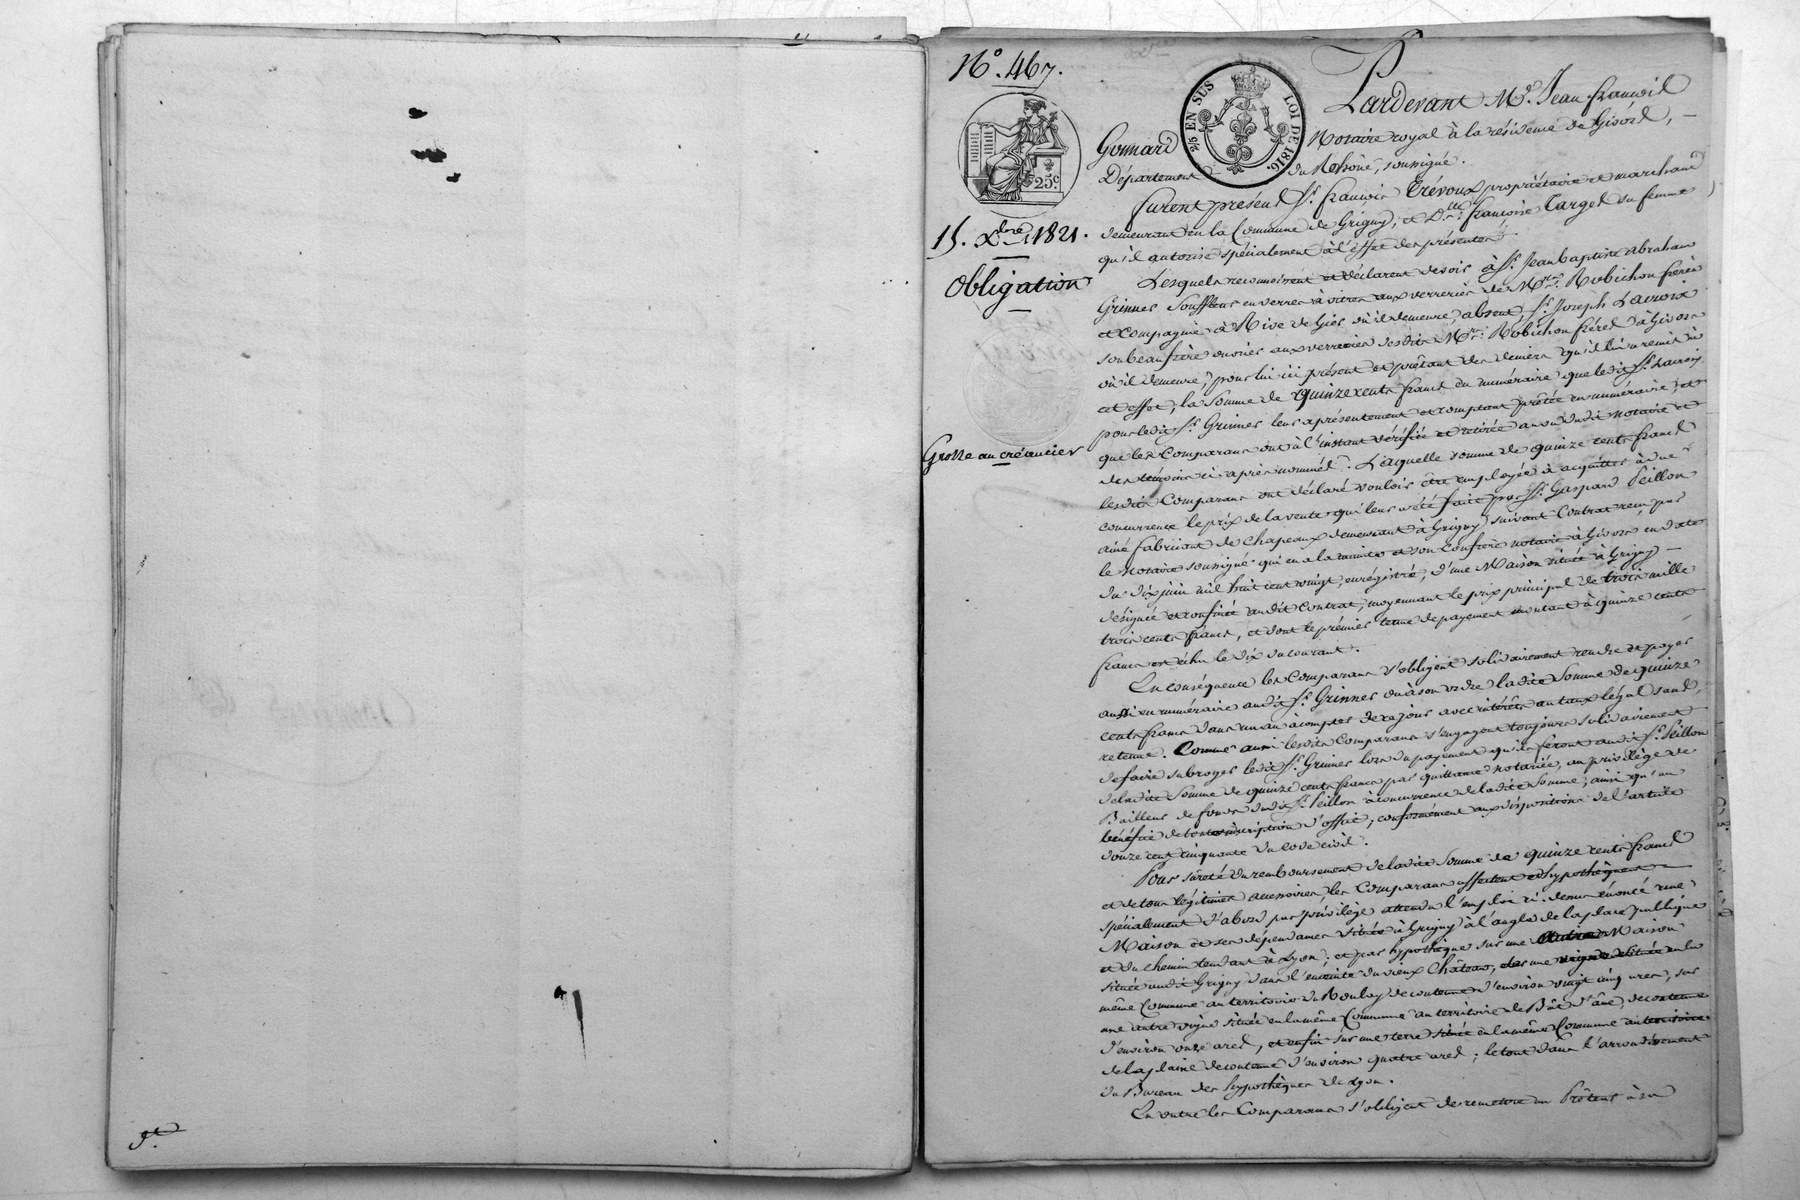 N.º 467.
25.c
2/5 EN SUS
LOI DE 1816.
15. Xbre 1821.
Obligation
Grosse au créancier
Pardevant Me. Jean françois
Gonnard Notaire royal à la résidence de Givors,
Département du Rhône, soussigné.
furent présent Sr. françois Trévoux propriétaire et marchand
demeurant en la Commune de Grigny, et Dlle. françoise Targe sa femme
qu'il autorise spécialement à l'effet des présentes
Lesquels reconnaissent et déclarent devoir à Sr. Jean baptiste abraham
Grinner Souffleur en verres à vitres aux verreries de Mrs. Robichon frères
et Compagnie à Rive de Gier où il demeure, absent, Sr. Joseph Lacroix
son beau frère ouvrier aux verreries desdits Mrs. Robichon frères à Givors
où il demeure, pour lui ici présent et prêtant des deniers qu'il lui a remis à
cet effet, la Somme de quinze cents francs du numéraire que ledit Sr. Lacroix
pour ledit Sr. Grinner leur a présentement et comptant prêtée en numéraire, et
que les Comparans ont à l'instant vérifiée et retirée au vu dudit notaire et
des témoins ci-après nommés. Laquelle somme de quinze cents francs
lesdits Comparans ont déclaré vouloir être employée à acquitter à due
concurrence le prix de la vente qui leur a été faite par Sr. Gaspard Peillon
ainé fabricant de Chapeaux demeurant à Grigny suivant Contrat reçu par
le Notaire soussigné qui en a la minute et son Confrère notaire à Givors en date
du dix juin mil huit cent vingt, enregistré, d'une Maison située à Grigny
désignée et confinée audit Contrat, moyennant le prix principal de trois mille
trois cents francs, et dont le premier terme de payement montant à quinze cents
francs est échu le dix du courant.
En conséquence les Comparans s'obligent solidairement rendre et payer
aussi en numéraire audit Sr. Grinner ou à son ordre ladite Somme de quinze
cents francs dans un an à compter de ce jour avec intérêts au taux légal sans
retenue. Comme aussi lesdits Comparans s'engagent toujours solidairement
de faire subroger ledit Sr. Grinner lors du payement qu'ils feront audit Sr. Peillon
de ladite Somme de quinze cents francs par quittance notariée, au privilège de
Bailleur de fonds dudit Sr. Peillon à concurrence de ladite Somme; ainsi qu'au
bénéfice de son inscription d'office, conformément aux dispositions de l'article
douze cent cinquante du code civil.
Pour sûreté du remboursement de ladite Somme de quinze cents francs
et de tous légitimes accessoires, les Comparans affectent et hypothèquent
spécialement d'abord par privilège attendu l'emploi ci-dessus énoncé une
Maison et ses dépendances située à Grigny à l'angle de la place publique
et du chemin tendant à Lyon; et par hypothèque sur une autre Maison
située audit Grigny dans l'enceinte du vieux Château, sur une vigne située en la
même Commune au territoire du Boulay de contenue d'environ vingt cinq ares, sur
une autre vigne située en la même Commune au territoire de Bât d'âne, de contenue
d'environ onze ares, et enfin sur une terre située en la même Commune au territoire
de la plaine de contenue d'environ quatre ares; le tout dans l'arrondissement
du Bureau des hypothèques de Lyon.
En outre les Comparans s'obligent de remettre au Prêteur à sa